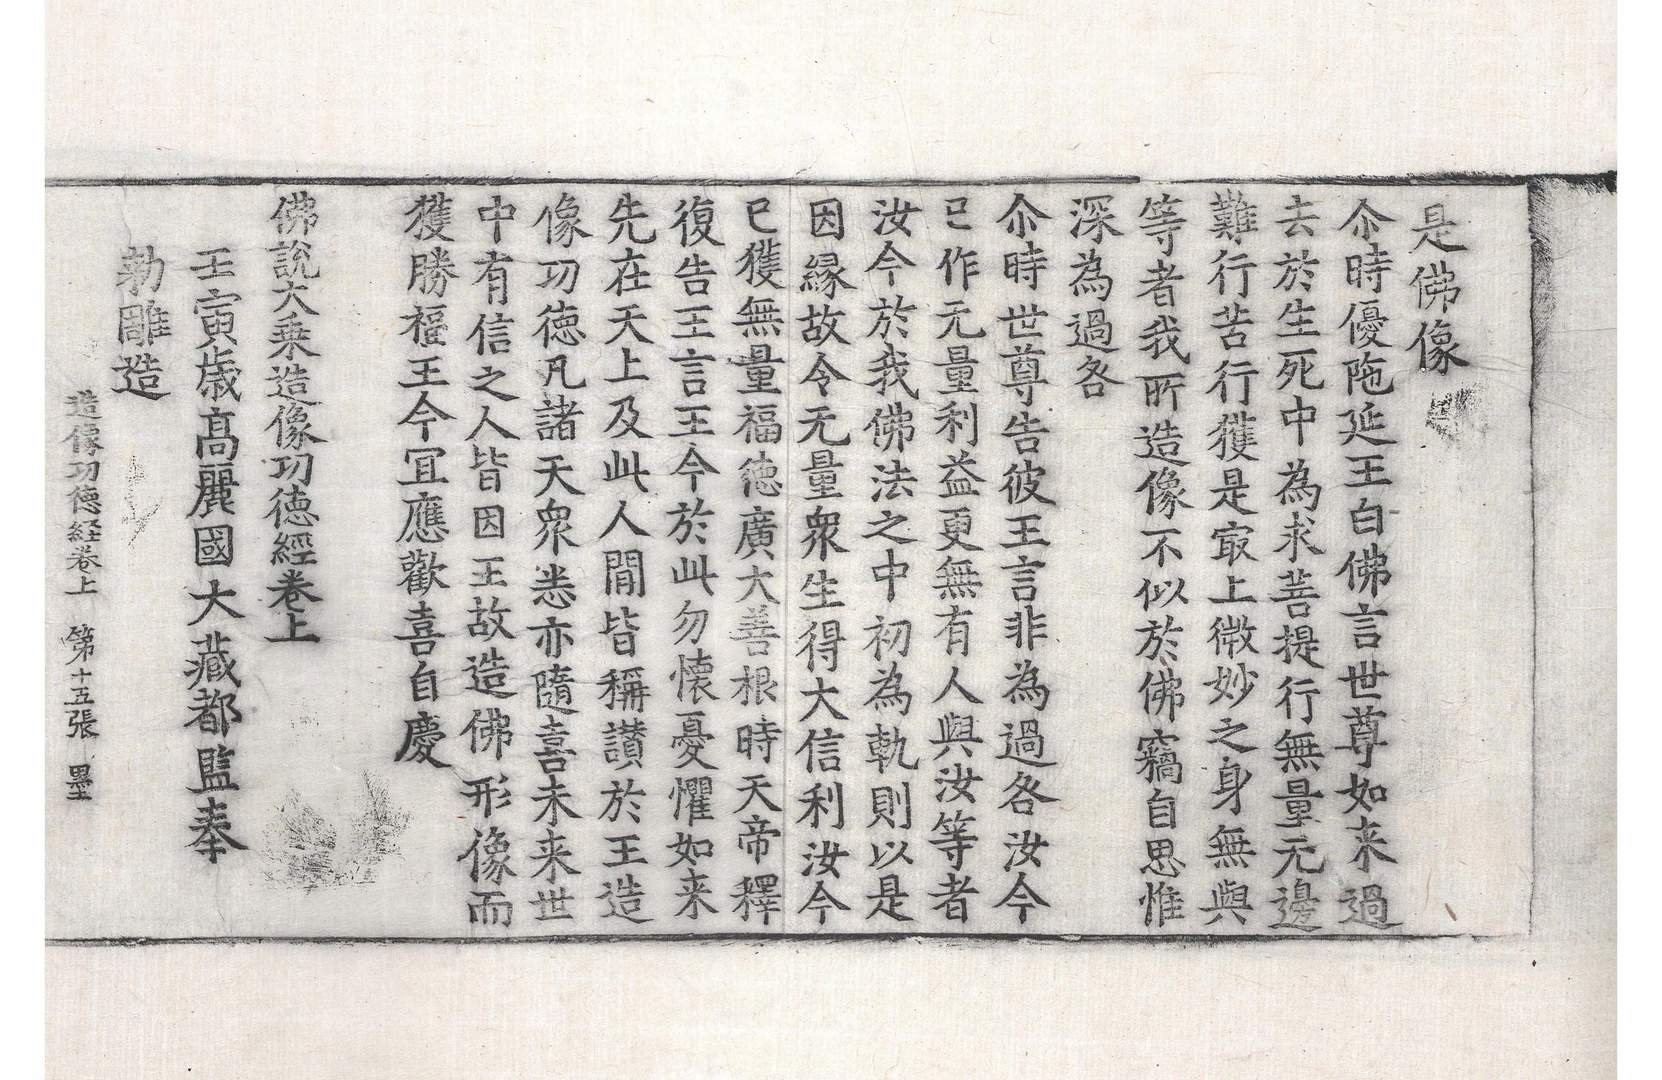 是佛像
尒時優陁延王白佛言世尊如来過
去於生死中為求菩提行無量无邊
難行苦行獲是㝡上微妙之身無與
等者我所造像不似於佛竊自思惟
深為過咎
尒時世尊告彼王言非為過咎汝今
已作无量利益更無有人與汝等者
汝今於我佛法之中初為軌則以是
因緣故令无量衆生得大信利汝今
已獲無量福德廣大善根時天帝釋
復告王言王今於此勿懷憂懼如来
先在天上及此人閒皆稱讃於王造
像功德凡諸天衆悉亦隨喜未来世
中有信之人皆因王故造佛形像而
獲勝福王今冝應歡喜自慶
佛說大乗造像功德經卷上
壬寅歳髙麗國大藏都監奉
勑雕造
造像功德経卷上　第十五張　墨